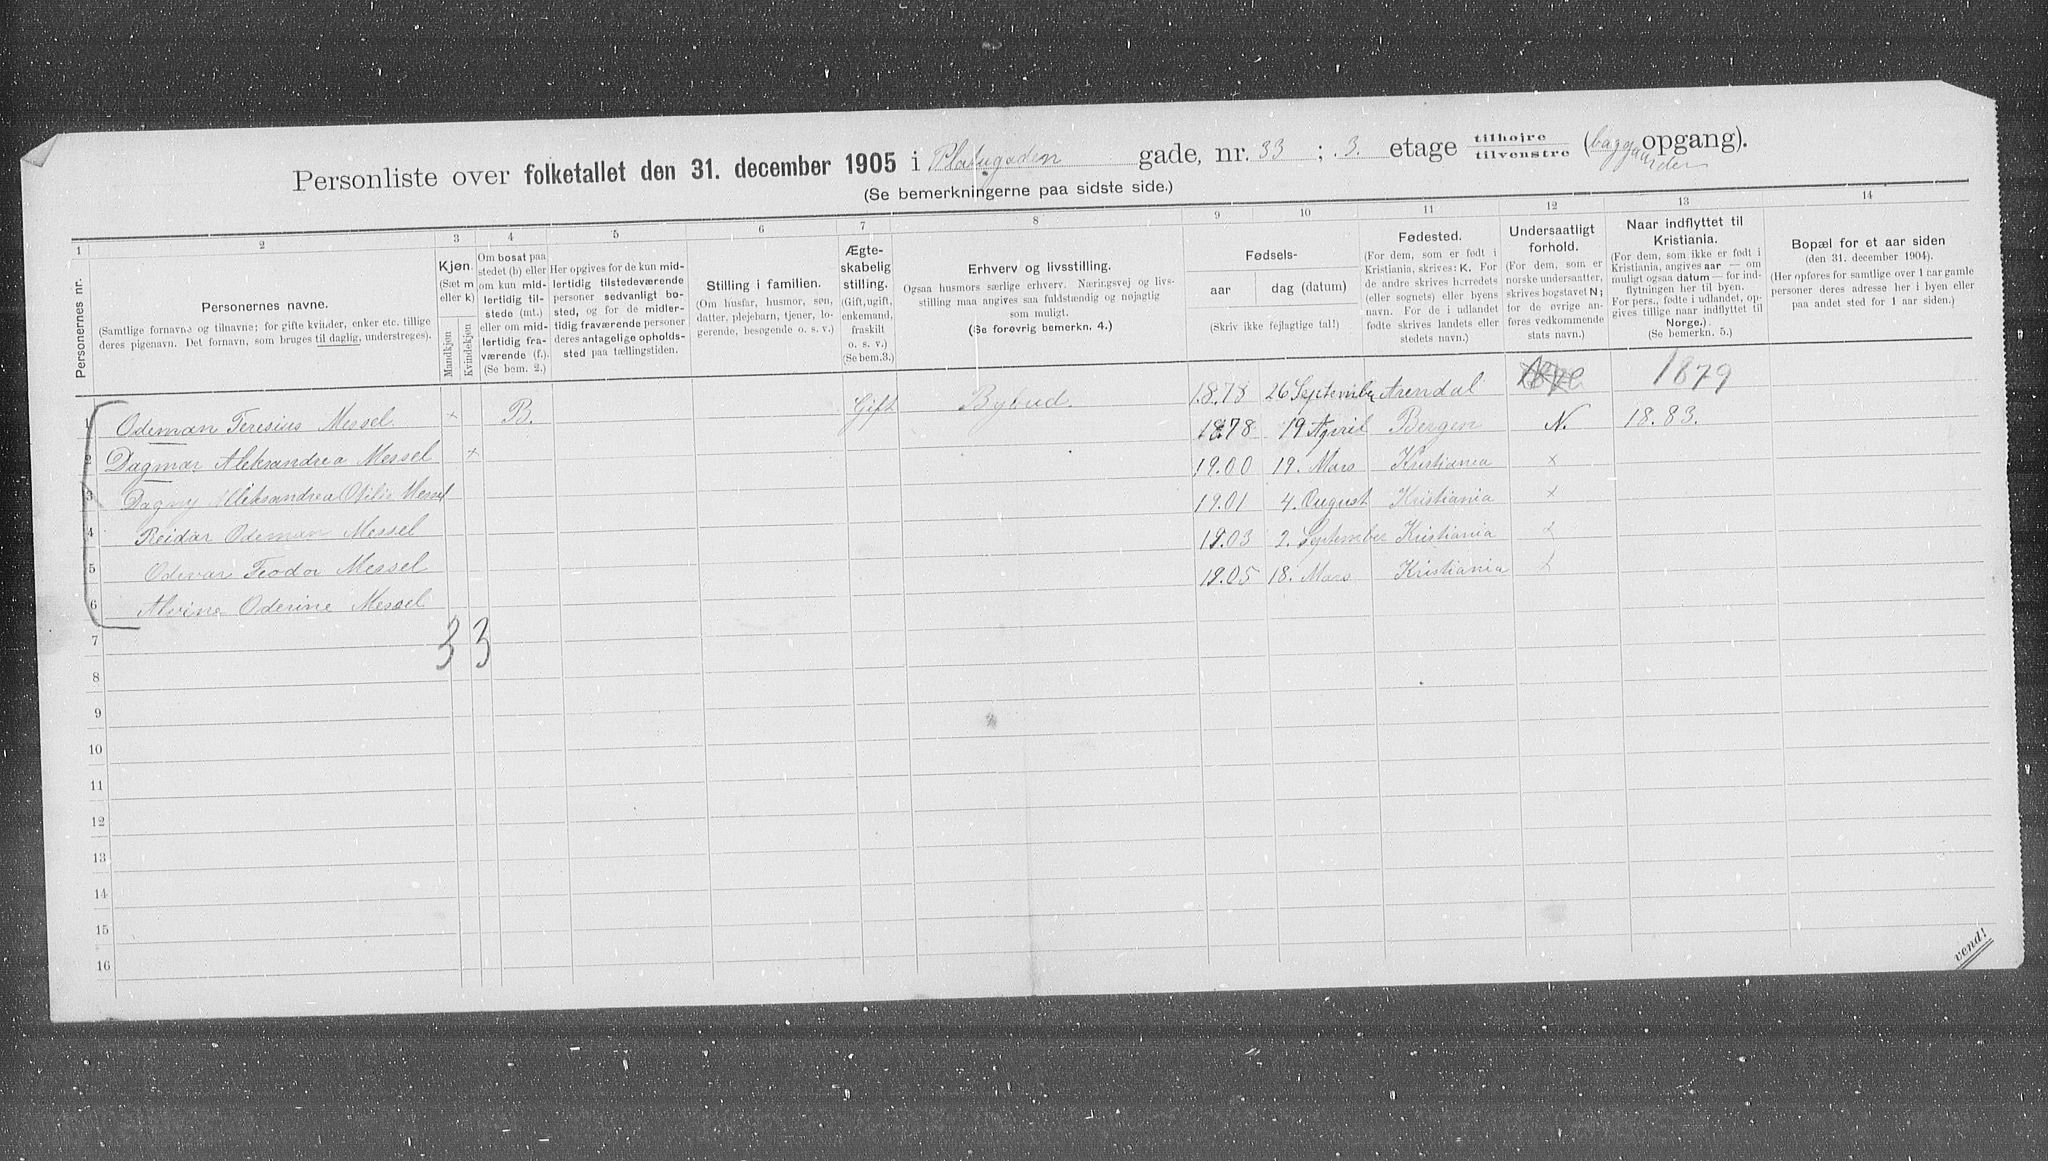 Personliste over folketallet den 31. december 1905 i Platugaden gade, nr. 33 ; 3. etage tilhøjre tilvenstre (baggaarden opgang).
(Se bemerkningerne paa sidste side.)
1 2 3 4 5 6 7 8 9 10 11 12 13 14
Personernes nr.
Personernes navne.
(Samtlige fornavne og tilnavne; for gifte kvinder, enker etc. tillige
deres pigenavn. Det fornavn, som bruges til daglig, understreges).
Kjøn.
(Sæt m
eller k)
Mandkjøn
Kvindekjøn
Om bosat paa
stedet (b) eller
om kun mid-
lertidig til-
stede (mt.)
eller om mid-
lertidig fra-
værende (f.).
(Se bem. 2.)
Her opgives for de kun mid-
lertidig tilstedeværende
personer sedvanlig bo-
sted, og for de midler-
tidig fraværende personer
deres antagelige opholds-
sted paa tællingstiden.
Stilling i familien.
(Om husfar, husmor, søn,
datter, plejebarn, tjener, lo-
gerende, besøgende o. s. v.)
Ægte-
skabelig
stilling.
(Gift, ugift,
enkemand,
fraskilt
o. s. v.)
(Se bem.3.)
Erhverv og livsstilling.
Ogsaa husmors særlige erhverv. Næringsvej og livs-
stilling maa angives saa fuldstændig og nøjagtig
som muligt.
(Se forøvrig bemerkn. 4.)
Fødsels-
aar dag (datum)
(Skriv ikke fejlagtige tal!)
Fødested.
(For dem, som er født i
Kristiania, skrives: K. For
de andre skrives herredets
(eller sognets) eller byens
navn. For de i udlandet
fødte skrives landets eller
stedets navn.)
Undersaatligt
forhold.
(For dem, som er
norske undersaatter,
skrives bogstavet N;
for de øvrige an-
føres vedkommende
stats navn.)
Naar indflyttet til
Kristiania.
(For dem, som ikke er født i
Kristiania, angives aar — om
muligt ogsaa datum — for ind-
flytningen her til byen.
For pers., fødte i udlandet, op-
gives tillige naar indflyttet til
Norge.)
(Se bemerkn. 5.)
Bopæl for et aar siden
(den 31. december 1904).
(Her opføres for samtlige over 1 aar gamle
personer deres adresse her i byen eller
paa andet sted for 1 aar siden.)
1 Odeman Teresius Messel. x B. Gift Bybud. 1878 26 September Arendal 1879
2 Dagmar Aleksandrea Messel x 1878 19 April Bergen N. 18.83.
3 Dagny Aleksandrea Otilie Messel 19.00 19. Mars Kristiania x
4 Reidar Odeman Messel 19.01 4. August Kristiania x
5 Odevar Teodor Messel 19.03 2. September Kristiania x
6 Alvine Oderine Messel 19.05 18. Mars Kristiania x
7
3 3
8
9
10
11
12
13
14
15
16
vend!